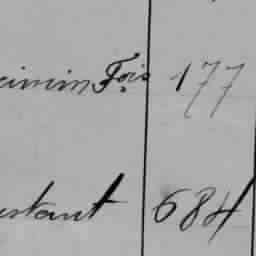 cimin Fois 177
stant 684